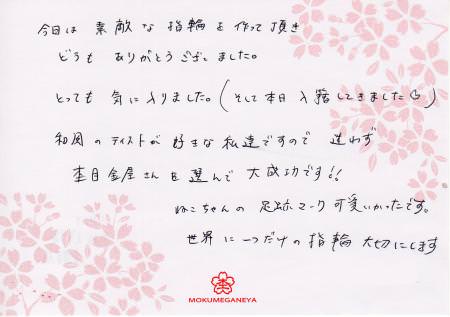 今日は 素敵な指輪を作って頂き
どうも ありがとうございました。
とっても 気に入りました。(そして本日 入籍してきました♡)
和風のテイストが 好きな私達ですので 迷わず
杢目金屋さんを選んで 大成功です!!
ねこちゃんの 足跡マーク可愛いかったです。
世界に一つだけの指輪 大切にします
MOKUMEGANEYA